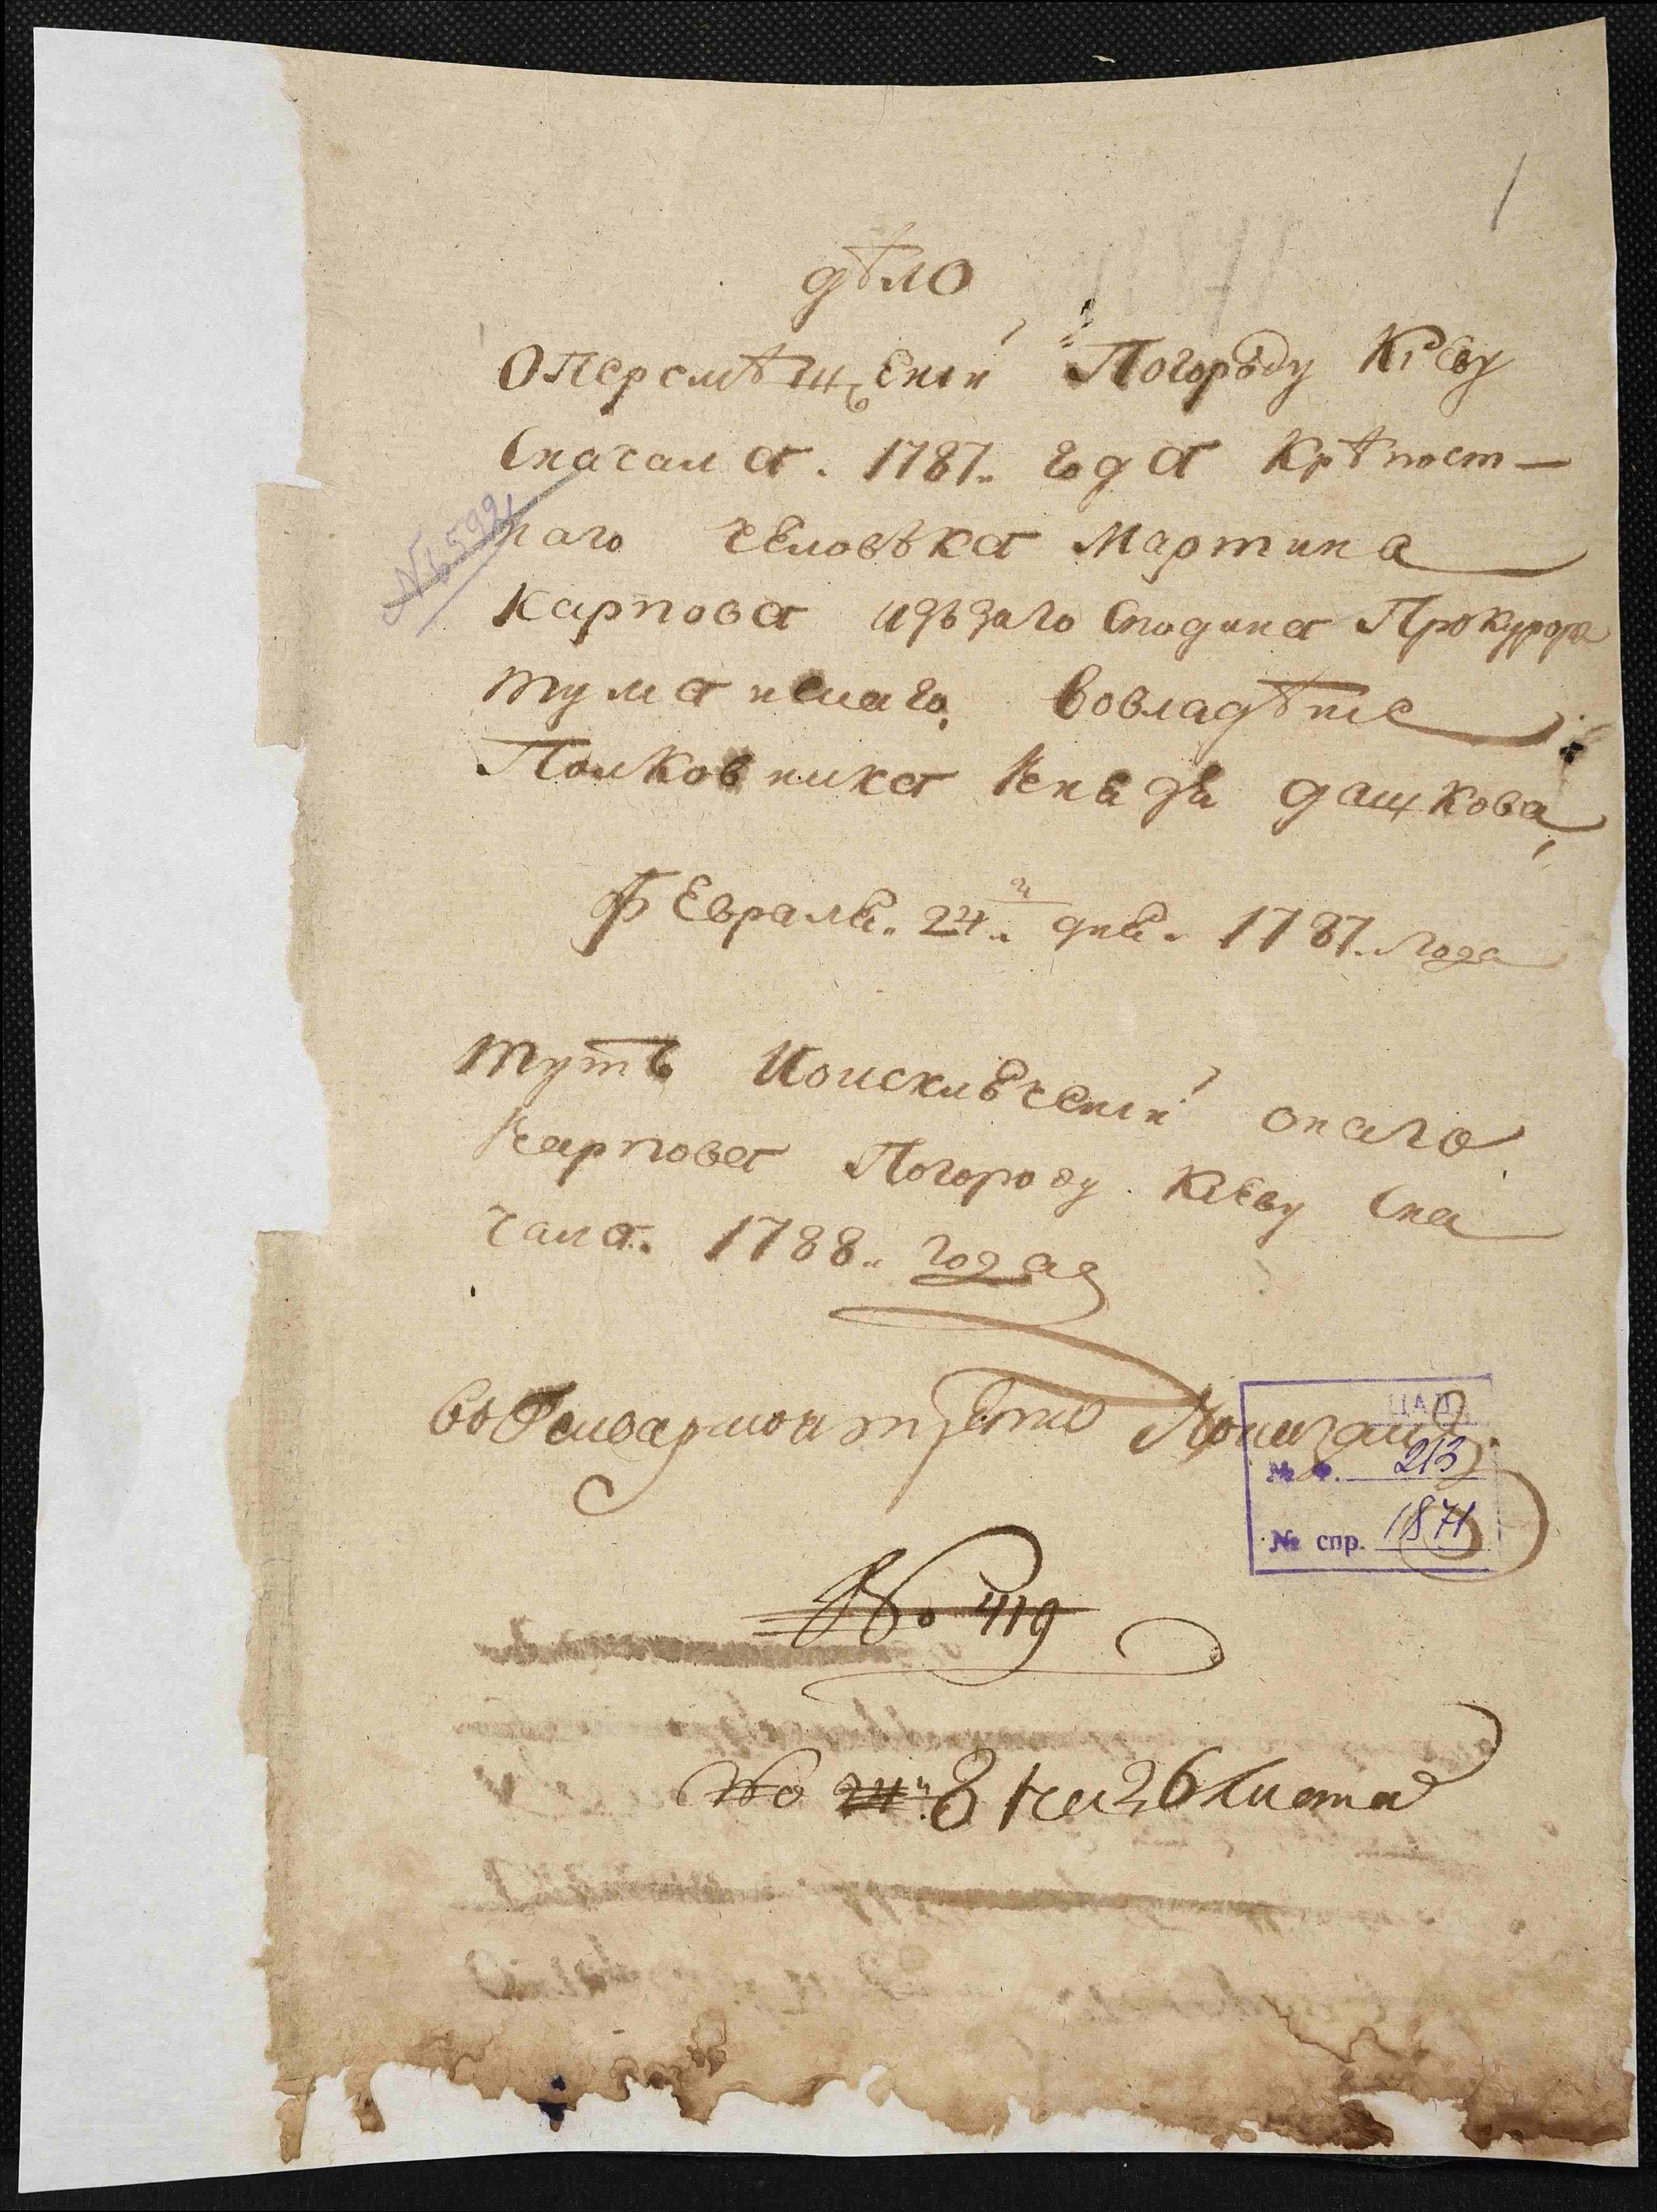 1
дѣло
Оперемѣщенїи Погороду Кїеву
Сначала. 1787. года крѣпост—
наго человѣка Мартина
№ 6592
Карпова изъзаго Сподина Прокурора
туманскаго. вовладѣние
Полковника Князя дашкова
Февраля. 24.г дня. 1787. года
тутъ Иоисключенїи онаго
Карпова Погороду Кїеву Сна
чала. 1788. года
ЦАД
№ Ф. 213
№ спр. 1871
No 419
No 24 8 на 26 листа